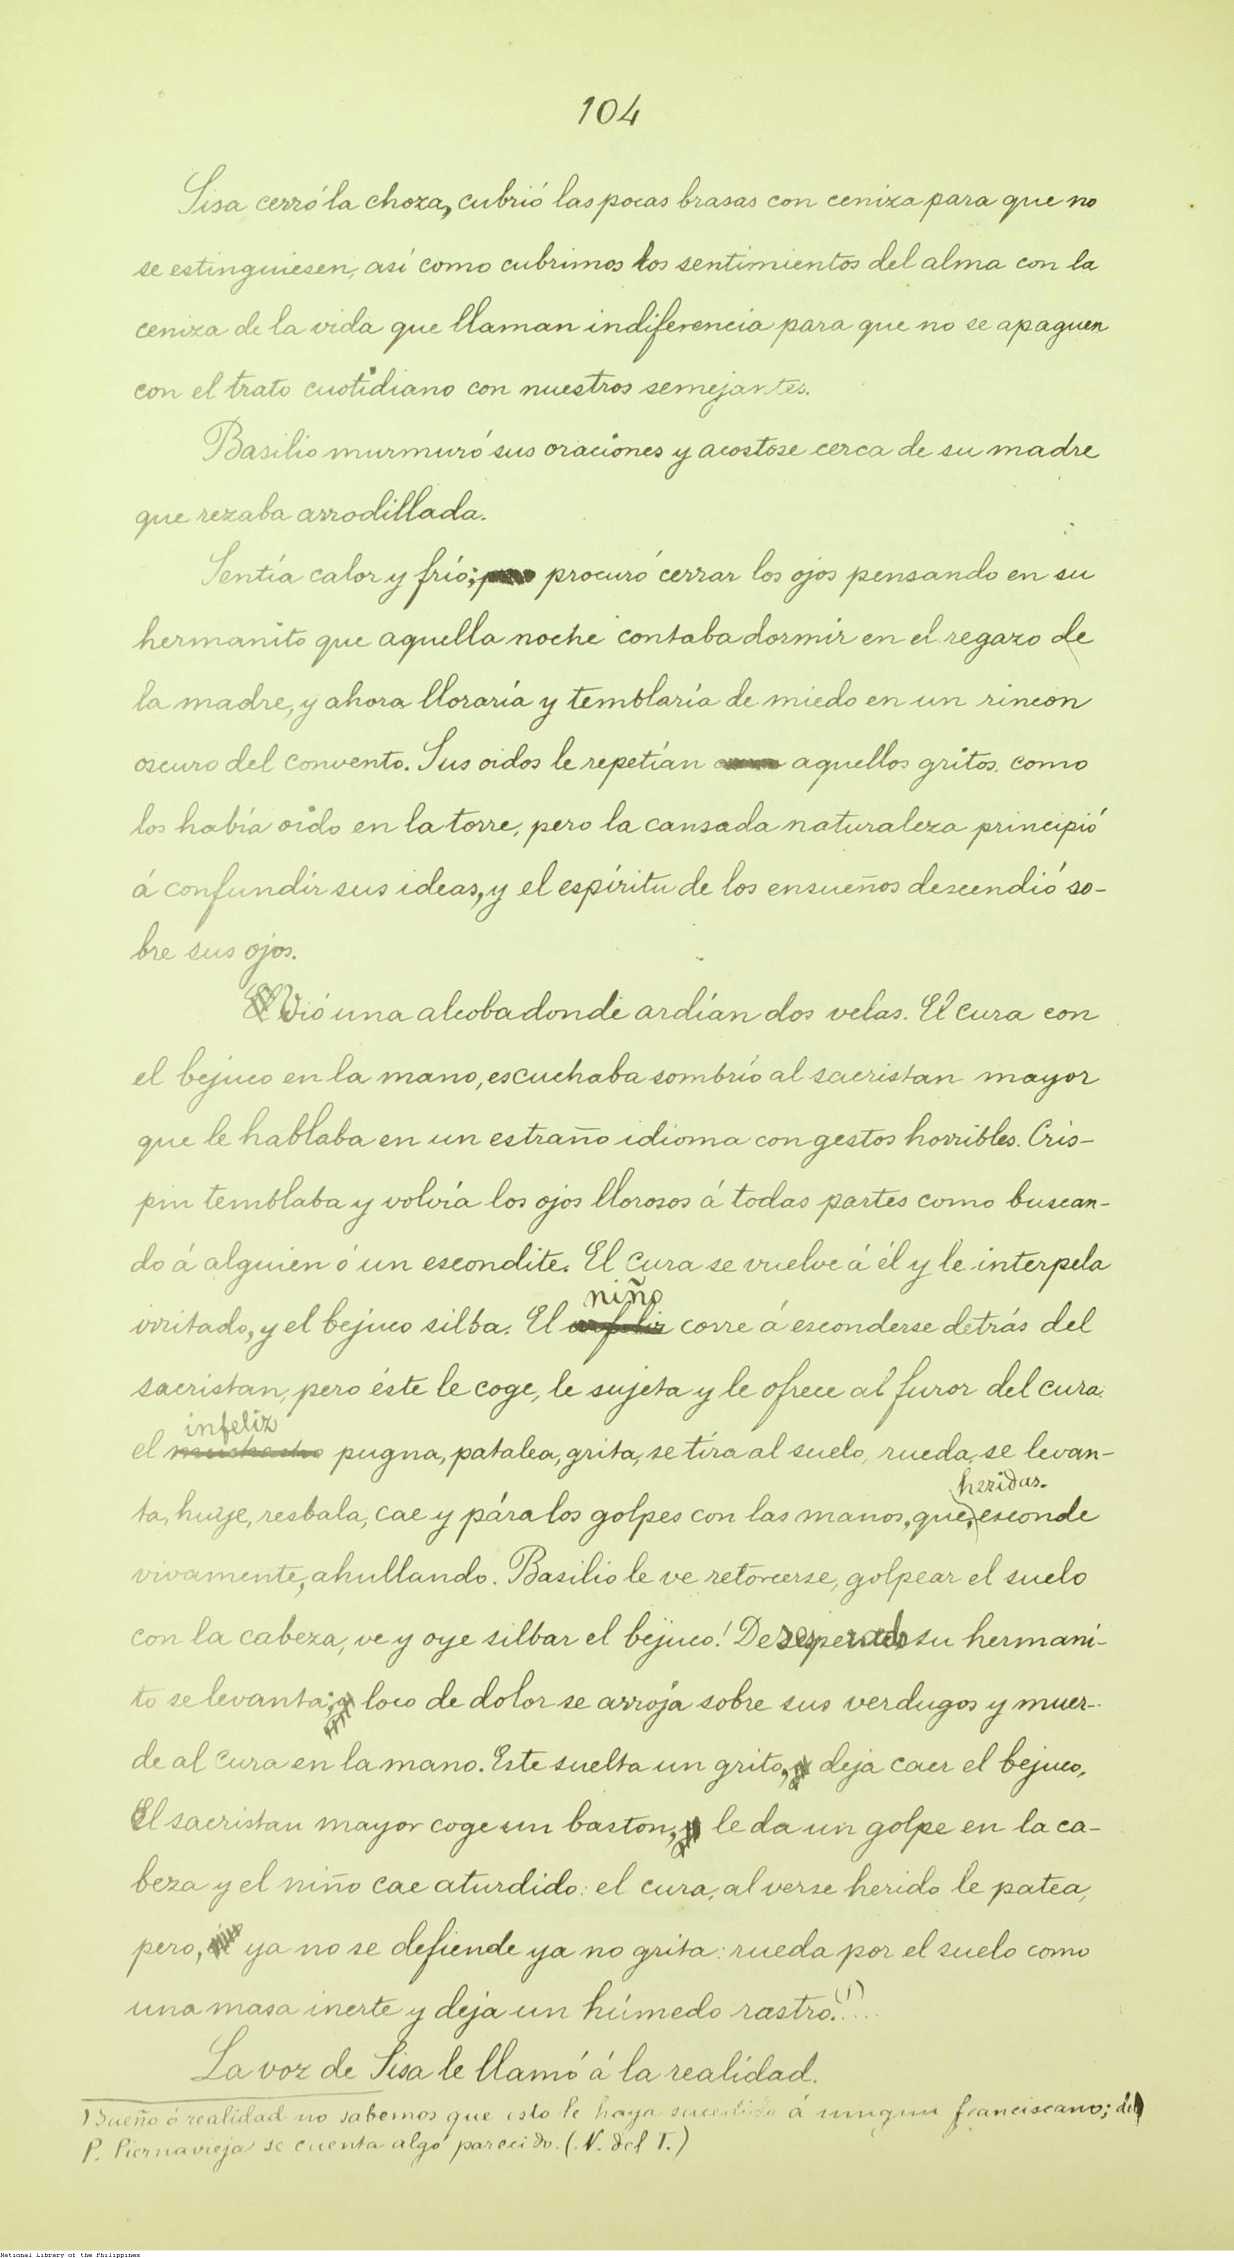 104
Sisa cerró la choza, cubrió las pocas brasas con ceniza para que no
se estinguiesen, así como cubrimos los sentimientos del alma con la
ceniza de la vida que llaman indiferencia para que no se apaguen
con el trato cuotidiano con nuestros semejantes.
Basilio murmuró sus oraciones y acostose cerca de su madre
que rezaba arrodillada.
Sentía calor y frío; procuró cerrar los ojos pensando en su
hermanito que aquella noche contaba dormir en el regazo de
la madre, y ahora lloraría y temblaría de miedo en un rincon
oscuro del convento. Sus oidos le repetían aquellos gritos, como
los había oido en la torre, pero la cansada naturaleza principió
á confundir sus ideas, y el espíritu de los ensueños descendió so-
bre sus ojos.
Vió una alcoba donde ardían dos velas. El cura con
el bejuco en la mano, escuchaba sombrío al sacristan mayor
que le hablaba en un estraño idioma con gestos horribles. Cris-
pin temblaba y volvía los ojos llorosos á todas partes como buscan-
do á alguien ó un escondite. El cura se vuelve á él y le interpela
niño
irritado, y el bejuco silba. El infeliz corre á esconderse detrás del
sacristan, pero éste le coge, le sujeta y le ofrece al furor del cura:
infeliz
el muchacho pugna, patalea, grita, se tira al suelo, rueda, se levan-
heridas.
ta, huye, resbala, cae y pára los golpes con las manos, que, esconde
vivamente, ahullando. Basilio le ve retorcerse, golpear el suelo
con la cabeza, ve y oye silbar el bejuco! Desesperado su hermani-
to se levanta; loco de dolor se arroja sobre sus verdugos y muer-
de al cura en la mano. Este suelta un grito, deja caer el bejuco,
El sacristan mayor coge un baston, le da un golpe en la ca-
beza y el niño cae aturdido: el cura, al verse herido le patea,
pero, ya no se defiende ya no grita: rueda por el suelo como
una masa inerte y deja un húmedo rastro.(1)...
La voz de Sisa le llamó á la realidad.
1) Sueño ó realidad no sabemos que esto le haya sucedido á ningun franciscano; del
P. Piernavieja se cuenta algo parecido. (N. del T.)
National Library of the Philippines